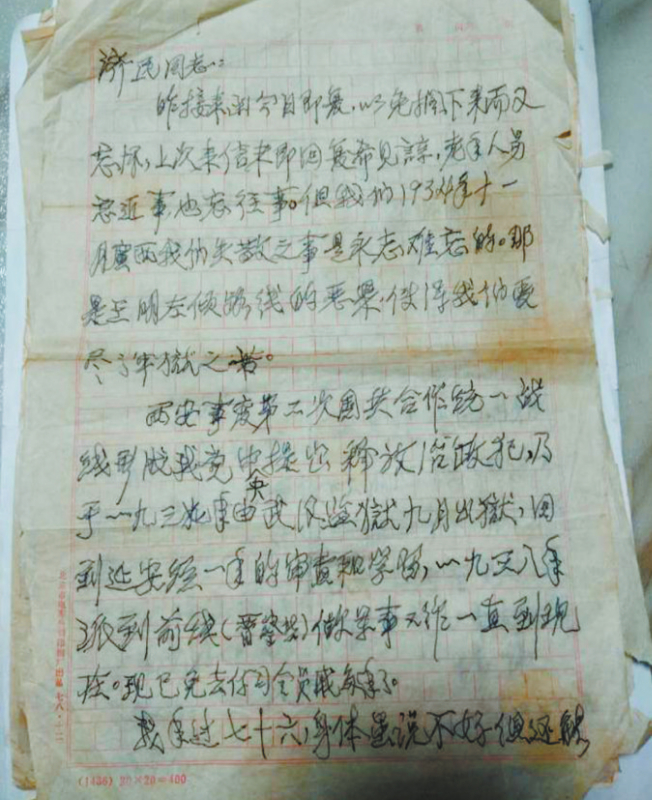 济民同志:
昨接来函今日即复,以免搁下来而又
忘怀,上次来信未即回复希见谅,老年人易
忘近事,也忘往事。但我们1934年十一
月 我们失散之事是永志难忘的。那
是王明左倾路线的恶果,使得我们受
尽了牢狱之苦。
西安事变第二次国共合作统一战
线形成我党中央提出释放 政犯,乃
于一九三七年由武汉监狱九月出狱,回
到延安经一年的审查和学习,一九三八年
派到前线(晋察冀)做军事工作一直到现
在。现已免去 司令员职务了。
我年过七十六,身体虽说不好但还能
(1436) 20×20=400